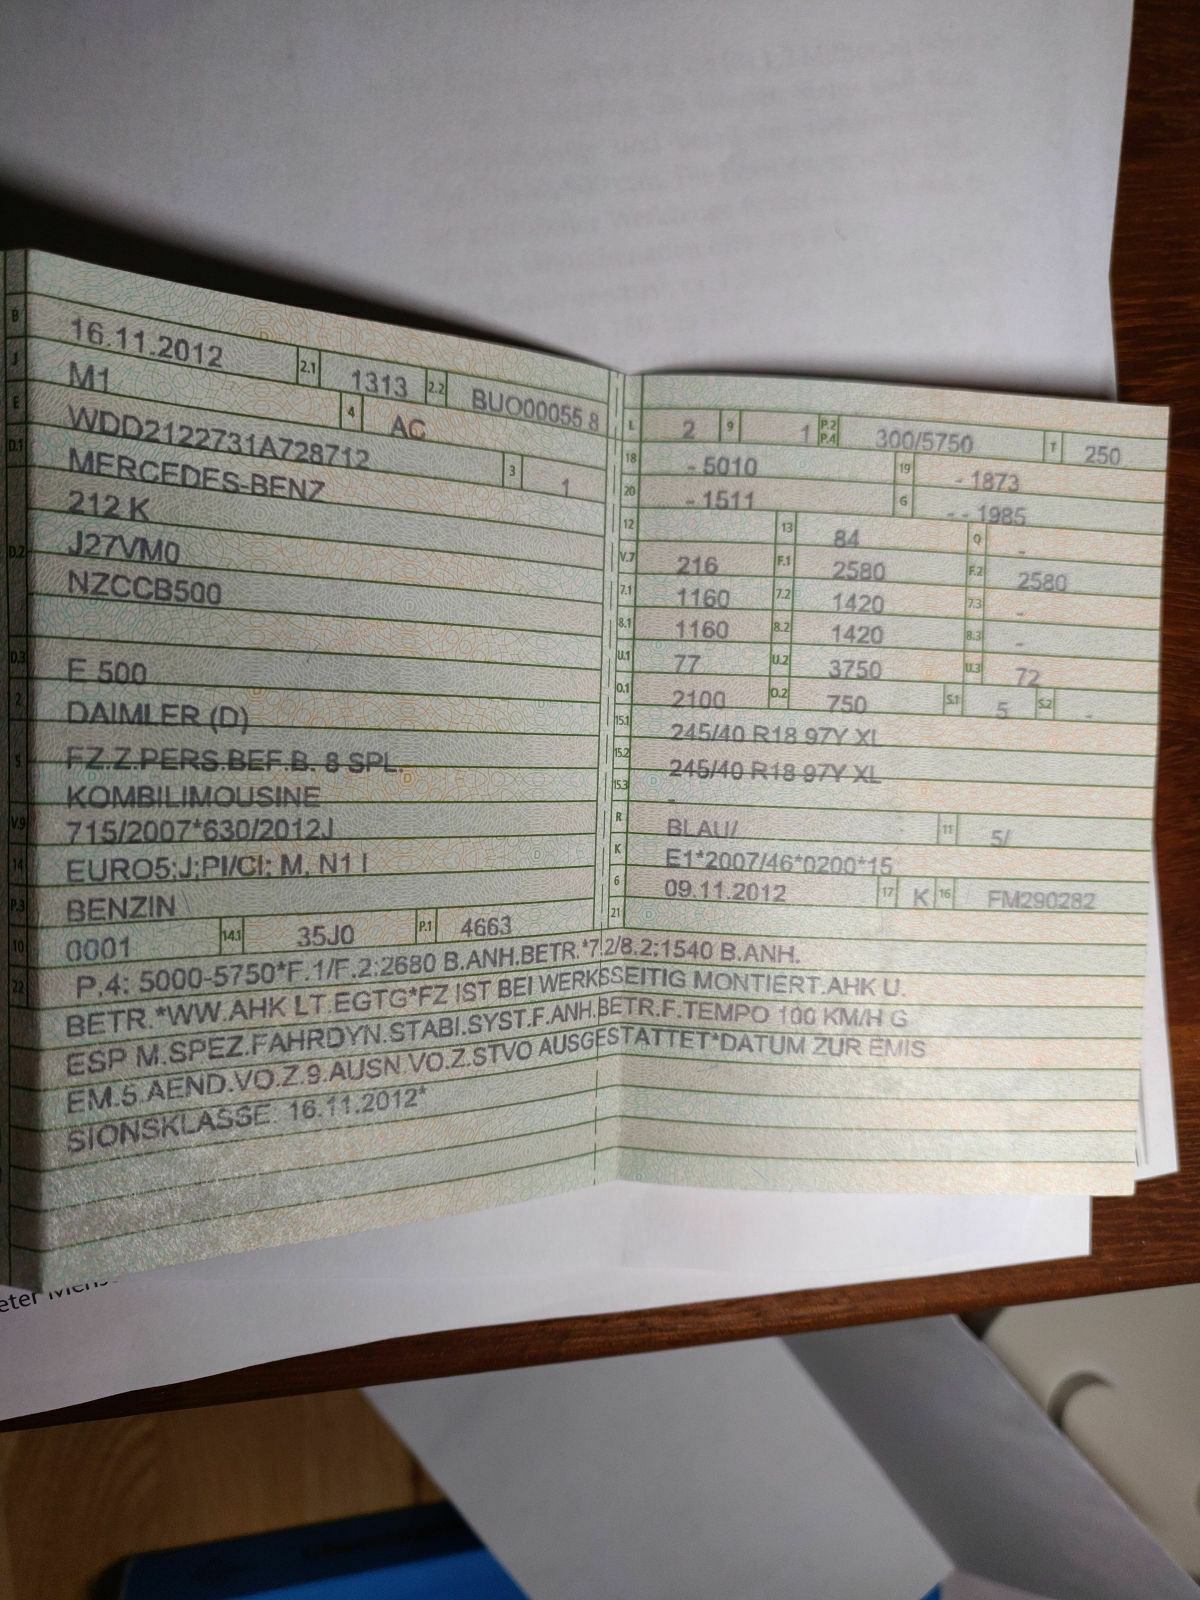 B 16.11.2012 2.1 1313 2.2 BUO00055 8
J M1 4 AC
E WDD2122731A728712 3 1
D.1 MERCEDES-BENZ
212 K
D.2 J27VM0
NZCCB500
D.3 E 500
2 DAIMLER (D)
5 FZ.Z.PERS.BEF.B. 8 SPL.
KOMBILIMOUSINE
V.9 715/2007*630/2012J
14 EURO5;J;PI/CI; M, N1 I
P.3 BENZIN
10 0001 14.1 35J0 P.1 4663
L 2 9 1 P.2 P.4 300/5750 T 250
18 - 5010 19 - 1873
20 - 1511 G - - 1985
12 13 84 Q -
V.7 216 F.1 2580 F.2 2580
7.1 1160 7.2 1420 7.3 -
8.1 1160 8.2 1420 8.3 -
U.1 77 U.2 3750 U.3 72
O.1 2100 O.2 750 S.1 5 S.2 -
15.1 245/40 R18 97Y XL
15.2 245/40 R18 97Y XL
15.3 -
R BLAU/ 11 5/
K E1*2007/46*0200*15
6 09.11.2012 17 K 16 FM290282
21
22 P.4: 5000-5750*F.1/F.2:2680 B.ANH.BETR.*7.2/8.2:1540 B.ANH.
BETR.*WW.AHK LT.EGTG*FZ IST BEI WERKSSEITIG MONTIERT.AHK U.
ESP M.SPEZ.FAHRDYN.STABI.SYST.F.ANH.BETR.F.TEMPO 100 KM/H G
EM.5.AEND.VO.Z.9.AUSN.VO.Z.STVO AUSGESTATTET*DATUM ZUR EMIS
SIONSKLASSE: 16.11.2012*